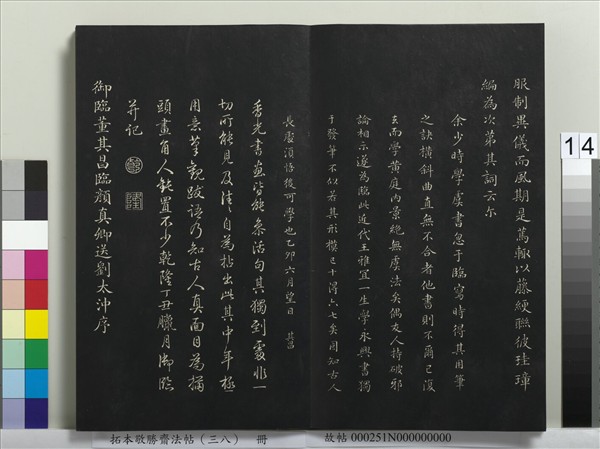 服制異儀而風期是篤輒以藤綆聯彼珪璋
編為次第其詞云尒
余少時學虞書忽于臨寫時得其用筆
之訣橫斜曲直無不合者他書則不爾已復
去而學黃庭內景絕無虞法矣偶友人持破邪
論相示遂為臨此近代王雅宜一生學永興書獨
于發筆不似若其形模已十得六七矣用知古人
長處須悟後可學也乙卯六月望日 其昌
香光書畫皆能參活句其獨到處非一
切所能見及淺淺自為拈出此其中年極
用意筆觀跋語乃知古人真面目為描
頭畫角人執置不少乾隆丁丑臘月御臨
并記
御臨董其昌臨顏真卿送劉太沖序
14
拓本敬勝齋法帖(三八) 冊
故帖 000251N000000000